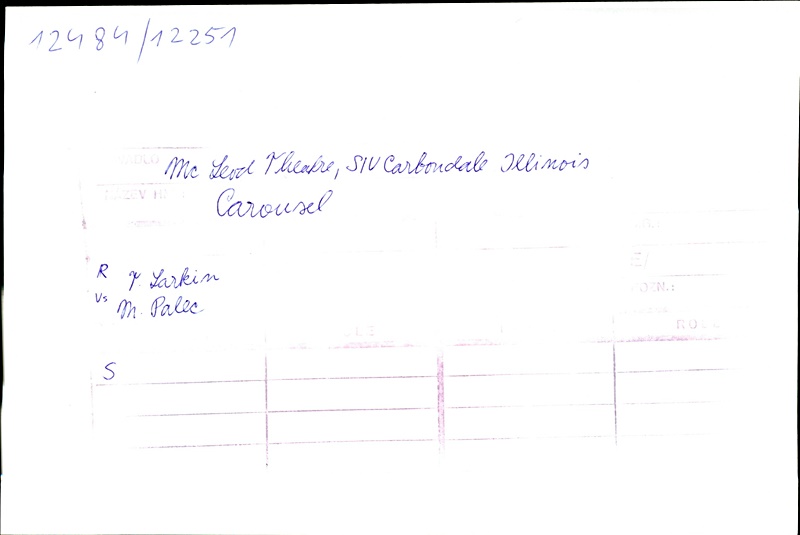 12484/12251
Mc Leod Theatre, SIU Carbondale Illinois
Carousel
R T. Larkin
Vs M. Palec
S